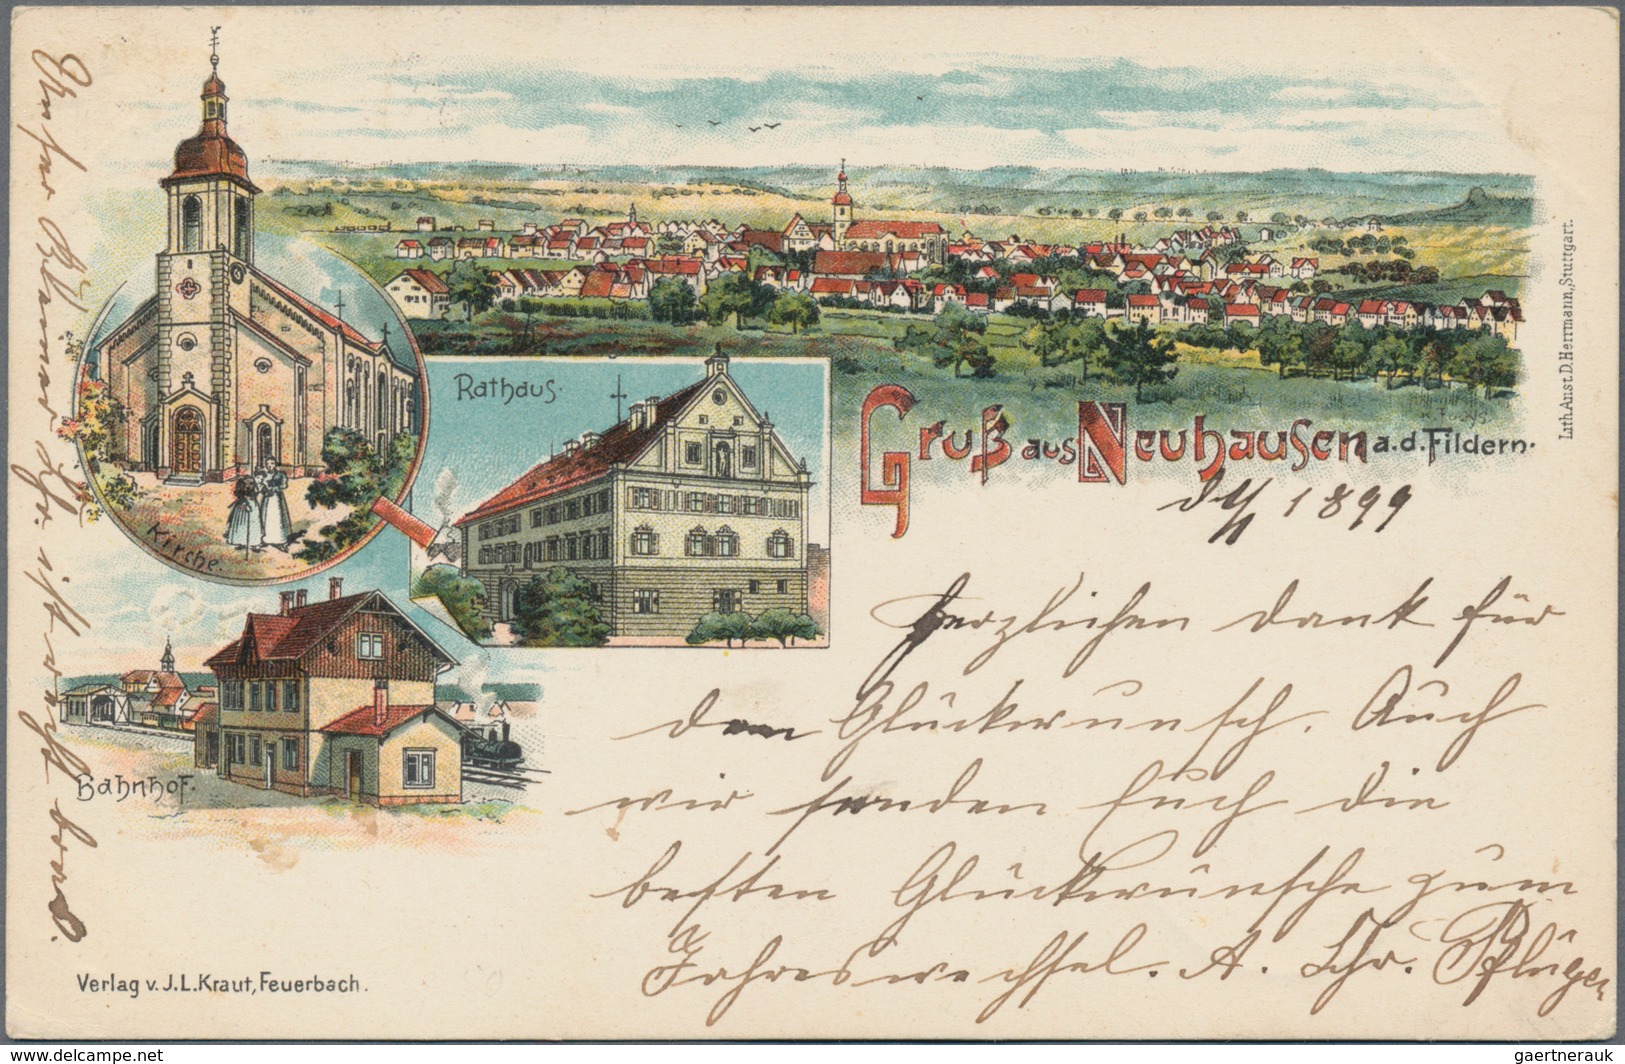 Gruß aus Neuhausen a.d. Fildern.
Kirche.
Rathaus.
Bahnhof.
Lith. Anst. D. Herrmann, Stuttgart.
1 1899
Herzlichen Dank für
den Glückwunsch. Auch
wir senden Euch die
besten Glückwünsche zum
Jahreswechsel. A. Chr. Pflüger
Unser
ist auch
Verlag v. J. L. Kraut, Feuerbach.
www.delcampe.net
gaertnerauk